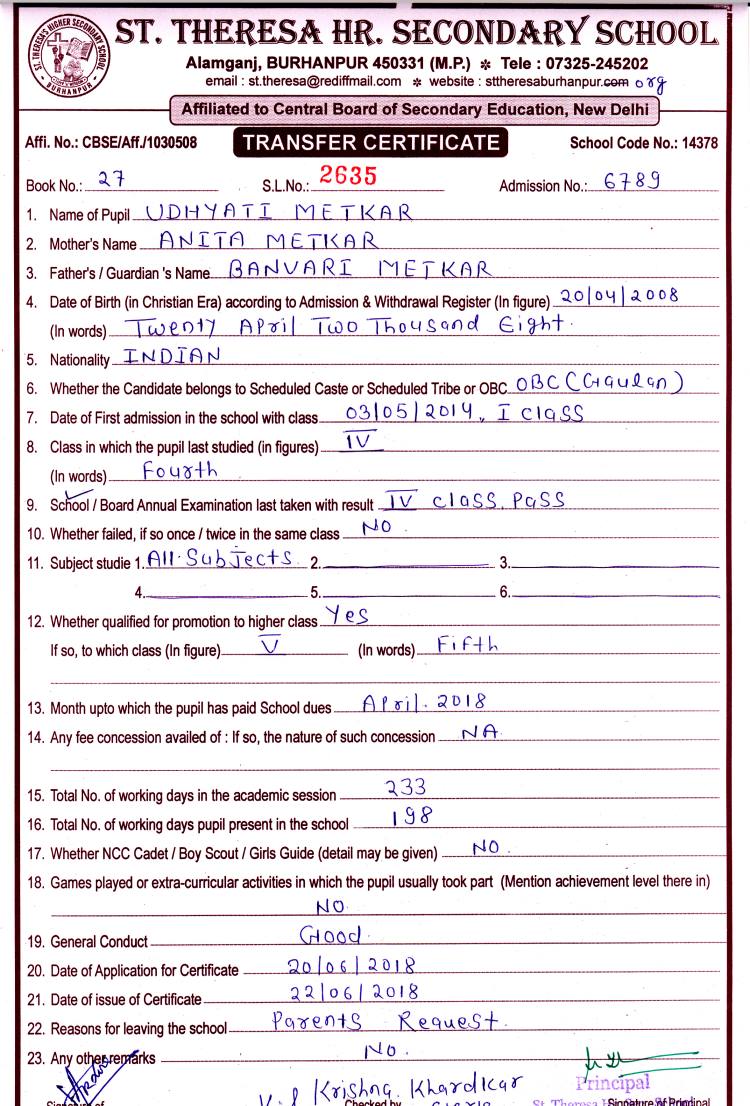 ST. THERESA'S HIGHER SECONDARY SCHOOL
BURHANPUR
ST. THERESA HR. SECONDARY SCHOOL
Alamganj, BURHANPUR 450331 (M.P.) * Tele : 07325-245202
email : st.theresa@rediffmail.com * website : sttheresaburhanpur.com org
Affiliated to Central Board of Secondary Education, New Delhi
Affi. No.: CBSE/Aff./1030508 TRANSFER CERTIFICATE School Code No.: 14378
Book No.: 27 S.L.No.: 2635 Admission No.: 6789
1. Name of Pupil UDHYATI METKAR
2. Mother's Name ANITA METKAR
3. Father's / Guardian 's Name BANVARI METKAR
4. Date of Birth (in Christian Era) according to Admission & Withdrawal Register (In figure) 20/04/2008
(In words) Twenty April Two Thousand Eight.
5. Nationality INDIAN
6. Whether the Candidate belongs to Scheduled Caste or Scheduled Tribe or OBC OBC (Gaulan)
7. Date of First admission in the school with class 03/05/2014, I class
8. Class in which the pupil last studied (in figures) IV
(In words) Fourth
9. School / Board Annual Examination last taken with result IV class. Pass
10. Whether failed, if so once / twice in the same class NO.
11. Subject studie 1. All Subjects 2. 3.
4. 5. 6.
12. Whether qualified for promotion to higher class Yes
If so, to which class (In figure) V (In words) Fifth
13. Month upto which the pupil has paid School dues April. 2018
14. Any fee concession availed of : If so, the nature of such concession NA.
15. Total No. of working days in the academic session 233
16. Total No. of working days pupil present in the school 198
17. Whether NCC Cadet / Boy Scout / Girls Guide (detail may be given) NO.
18. Games played or extra-curricular activities in which the pupil usually took part (Mention achievement level there in)
NO.
19. General Conduct Good.
20. Date of Application for Certificate 20/06/2018
21. Date of issue of Certificate 22/06/2018
22. Reasons for leaving the school Parents Request.
23. Any other remarks NO.
Krishna Khardikar
Principal
Checked by
St. Theresa
Signature of Principal